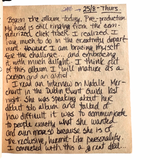 25/8 - Thurs
Began the album today. Pre-production
my head is still ringing from the com-
puterized click track. I realized I
much to do in the creativity depart-
ment. However I am having myself
for the challenge and
it with much delight. I think after
this album I will mature as a
person and an artist.
I read an interview on Natalie Mer-
chant in the Dublin Event Guide last
night. She was speaking about her
debut solo album and talked of
how difficult it was to communicate
to people exactly what she wanted
and even more so because she is of
the reclusive, humble like personality.
I connected with this a great deal.